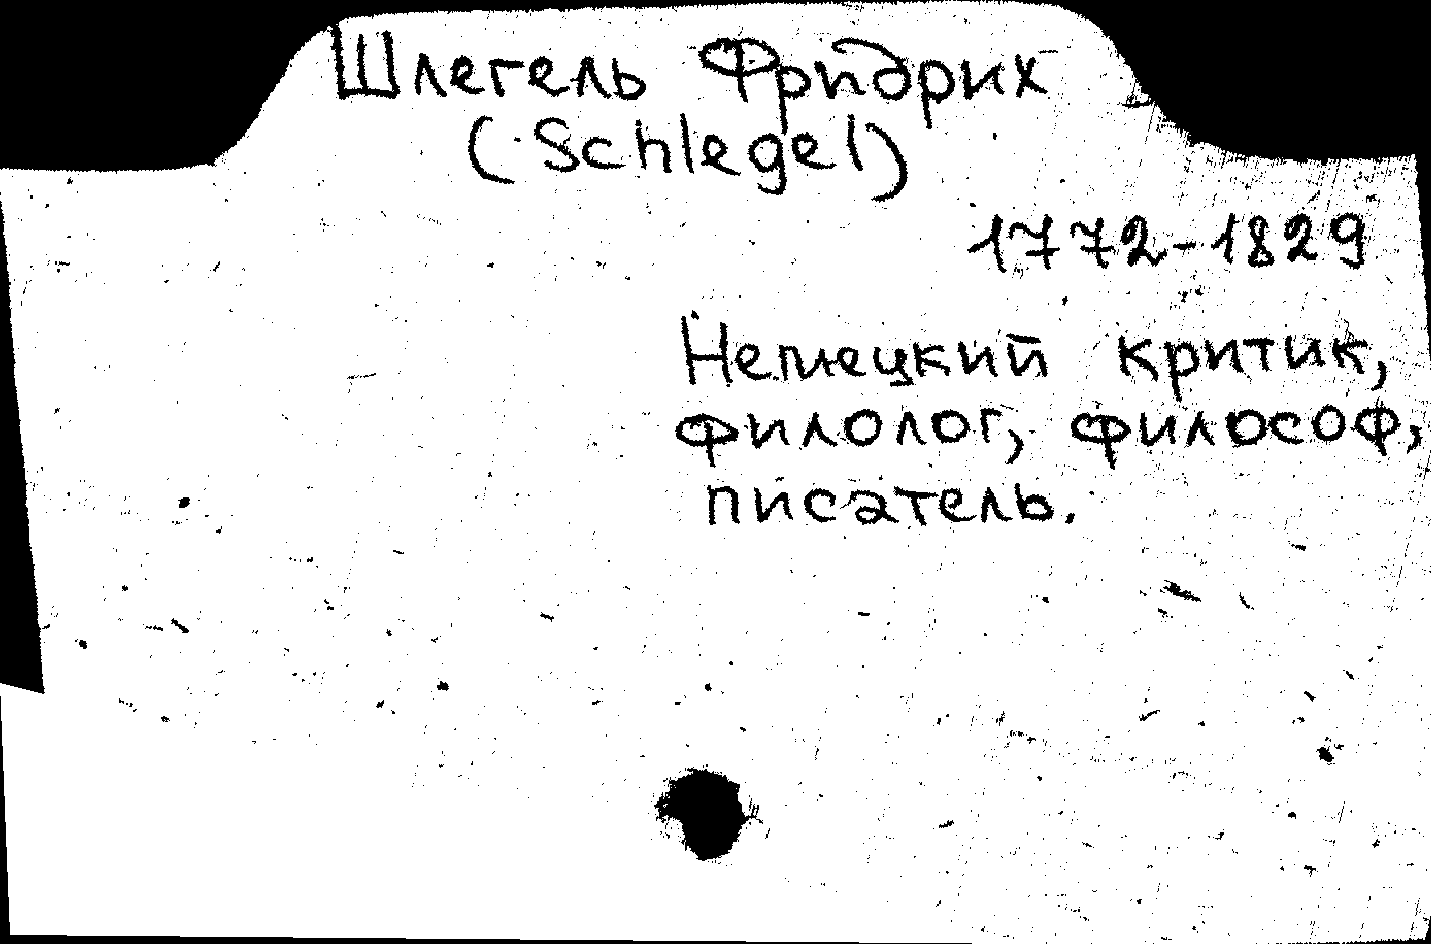 Шлегель Фридрих
(Schlegel)
1772-1829
Немецкий критик,
филолог, философ,
писатель.